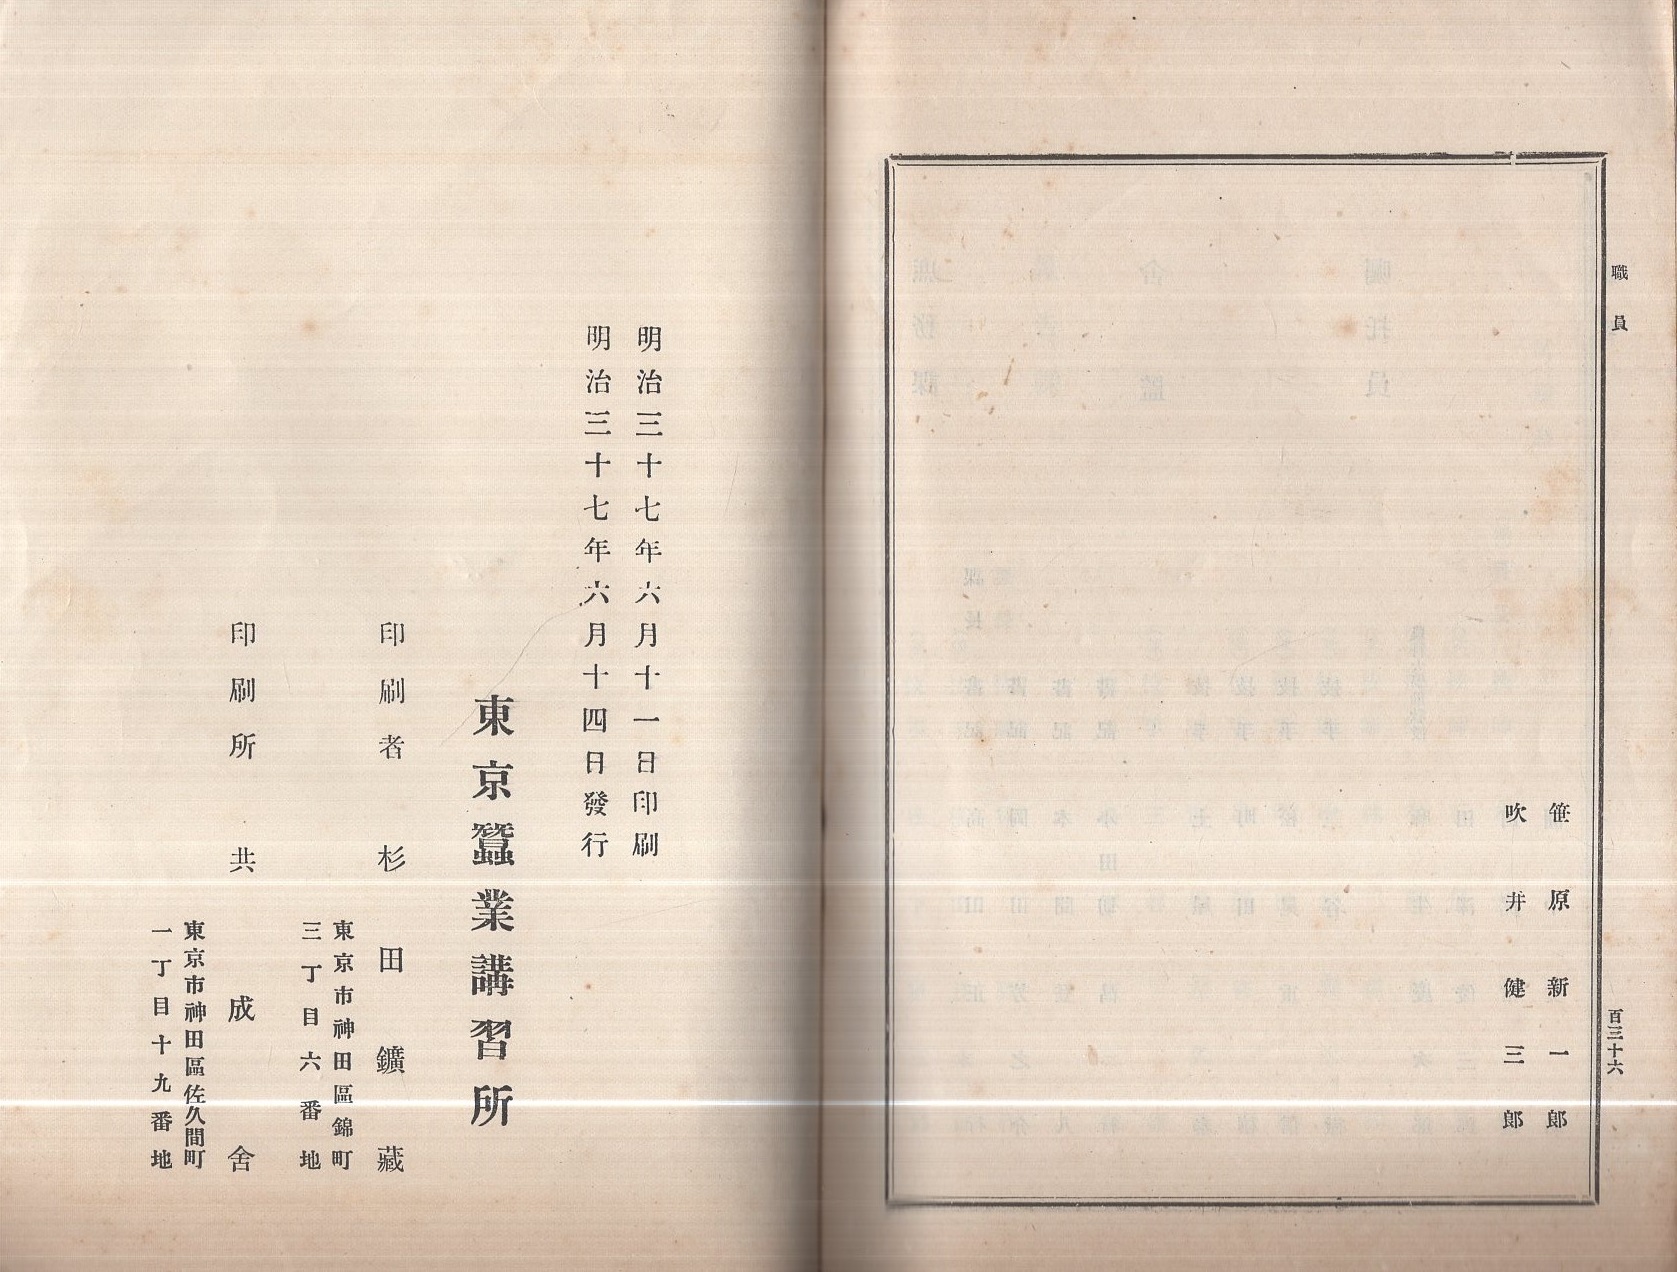 職員
百三十六
笹原新一郎
吹井健三郎
明治三十七年六月十一日印刷
明治三十七年六月十四日發行
東京蠶業講習所
東京市神田區錦町
三丁目六番地
印刷者 杉田鑛藏
東京市神田區佐久間町
一丁目十九番地
印刷所 共成舍